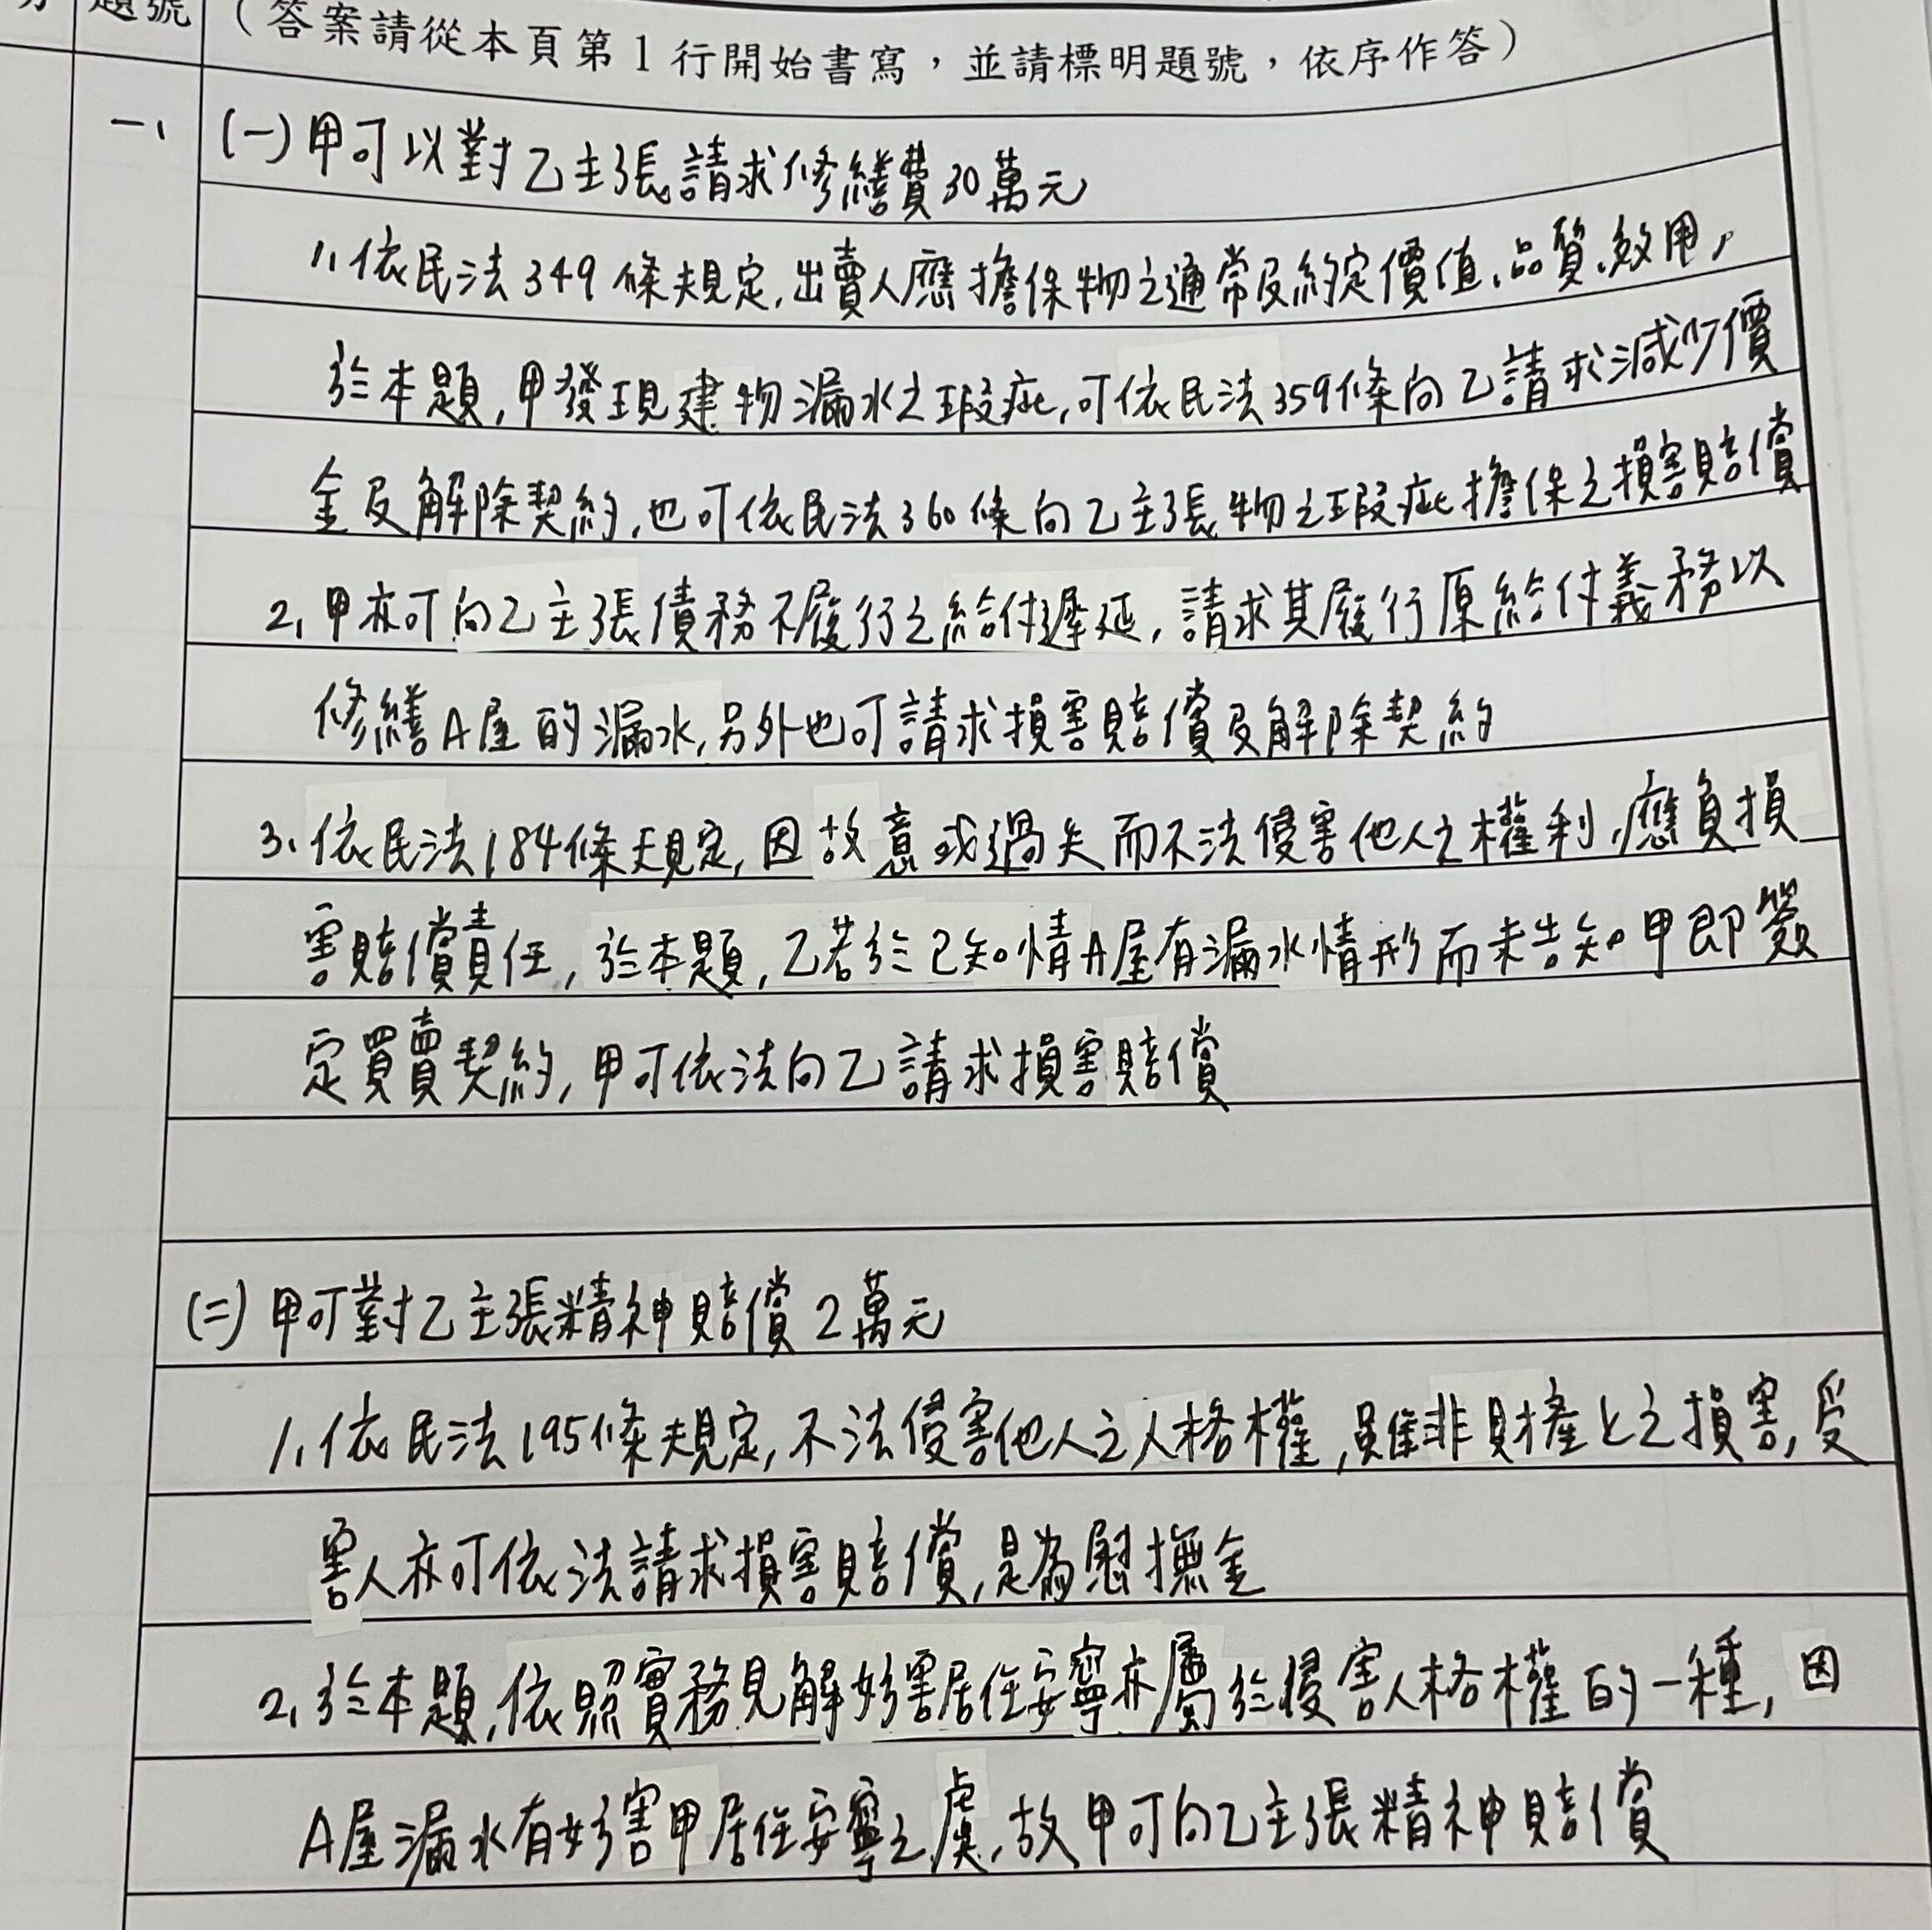 題號
(答案請從本頁第1行開始書寫,並請標明題號,依序作答)
一、(一)甲可以對乙主張請求修繕費30萬元
1、依民法349條規定,出賣人應擔保物之通常及約定價值、品質、效用,
於本題,甲發現建物漏水之瑕疵,可依民法359條向乙請求減少價
金及解除契約,也可依民法360條向乙主張物之瑕疵擔保之損害賠償
2、甲亦可向乙主張債務不履行之給付遲延,請求其履行原給付義務以
修繕A屋的漏水,另外也可請求損害賠償及解除契約
3、依民法184條規定,因故意或過失而不法侵害他人之權利,應負損
害賠償責任,於本題,乙若於已知情A屋有漏水情形而未告知甲即簽
定買賣契約,甲可依法向乙請求損害賠償
(二)甲可對乙主張精神賠償2萬元
1、依民法195條規定,不法侵害他人之人格權,雖非財產上之損害,受
害人亦可依法請求損害賠償,是為慰撫金
2、於本題,依照實務見解妨害居住安寧亦屬於侵害人格權的一種,因
A屋漏水有妨害甲居住安寧之虞,故甲可向乙主張精神賠償